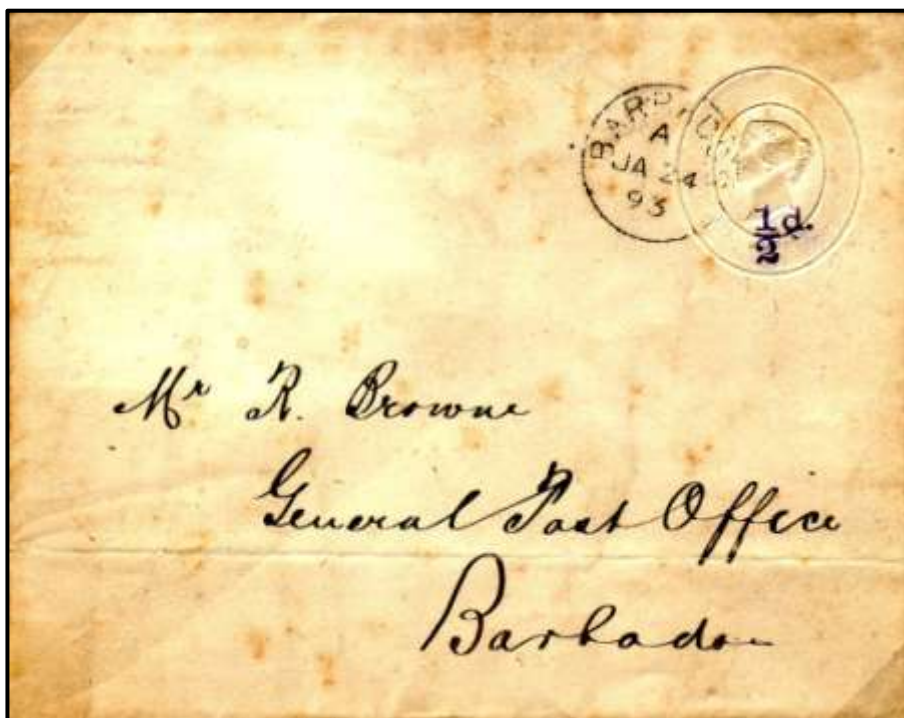 BARBADOS
A
JA 24
93
1/2d.
Mr R. Browne
General Post Office
Barbados